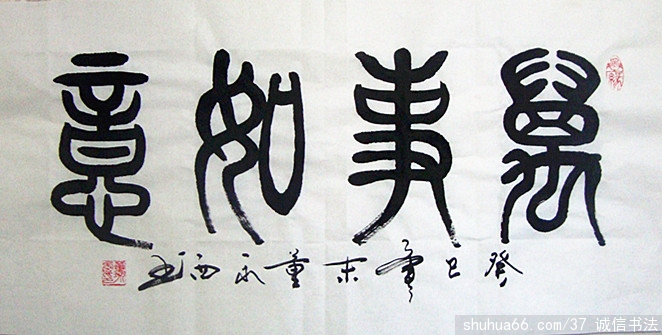 萬事如意
癸巳夏末董永西
shuhua66.com/37 诚信书法